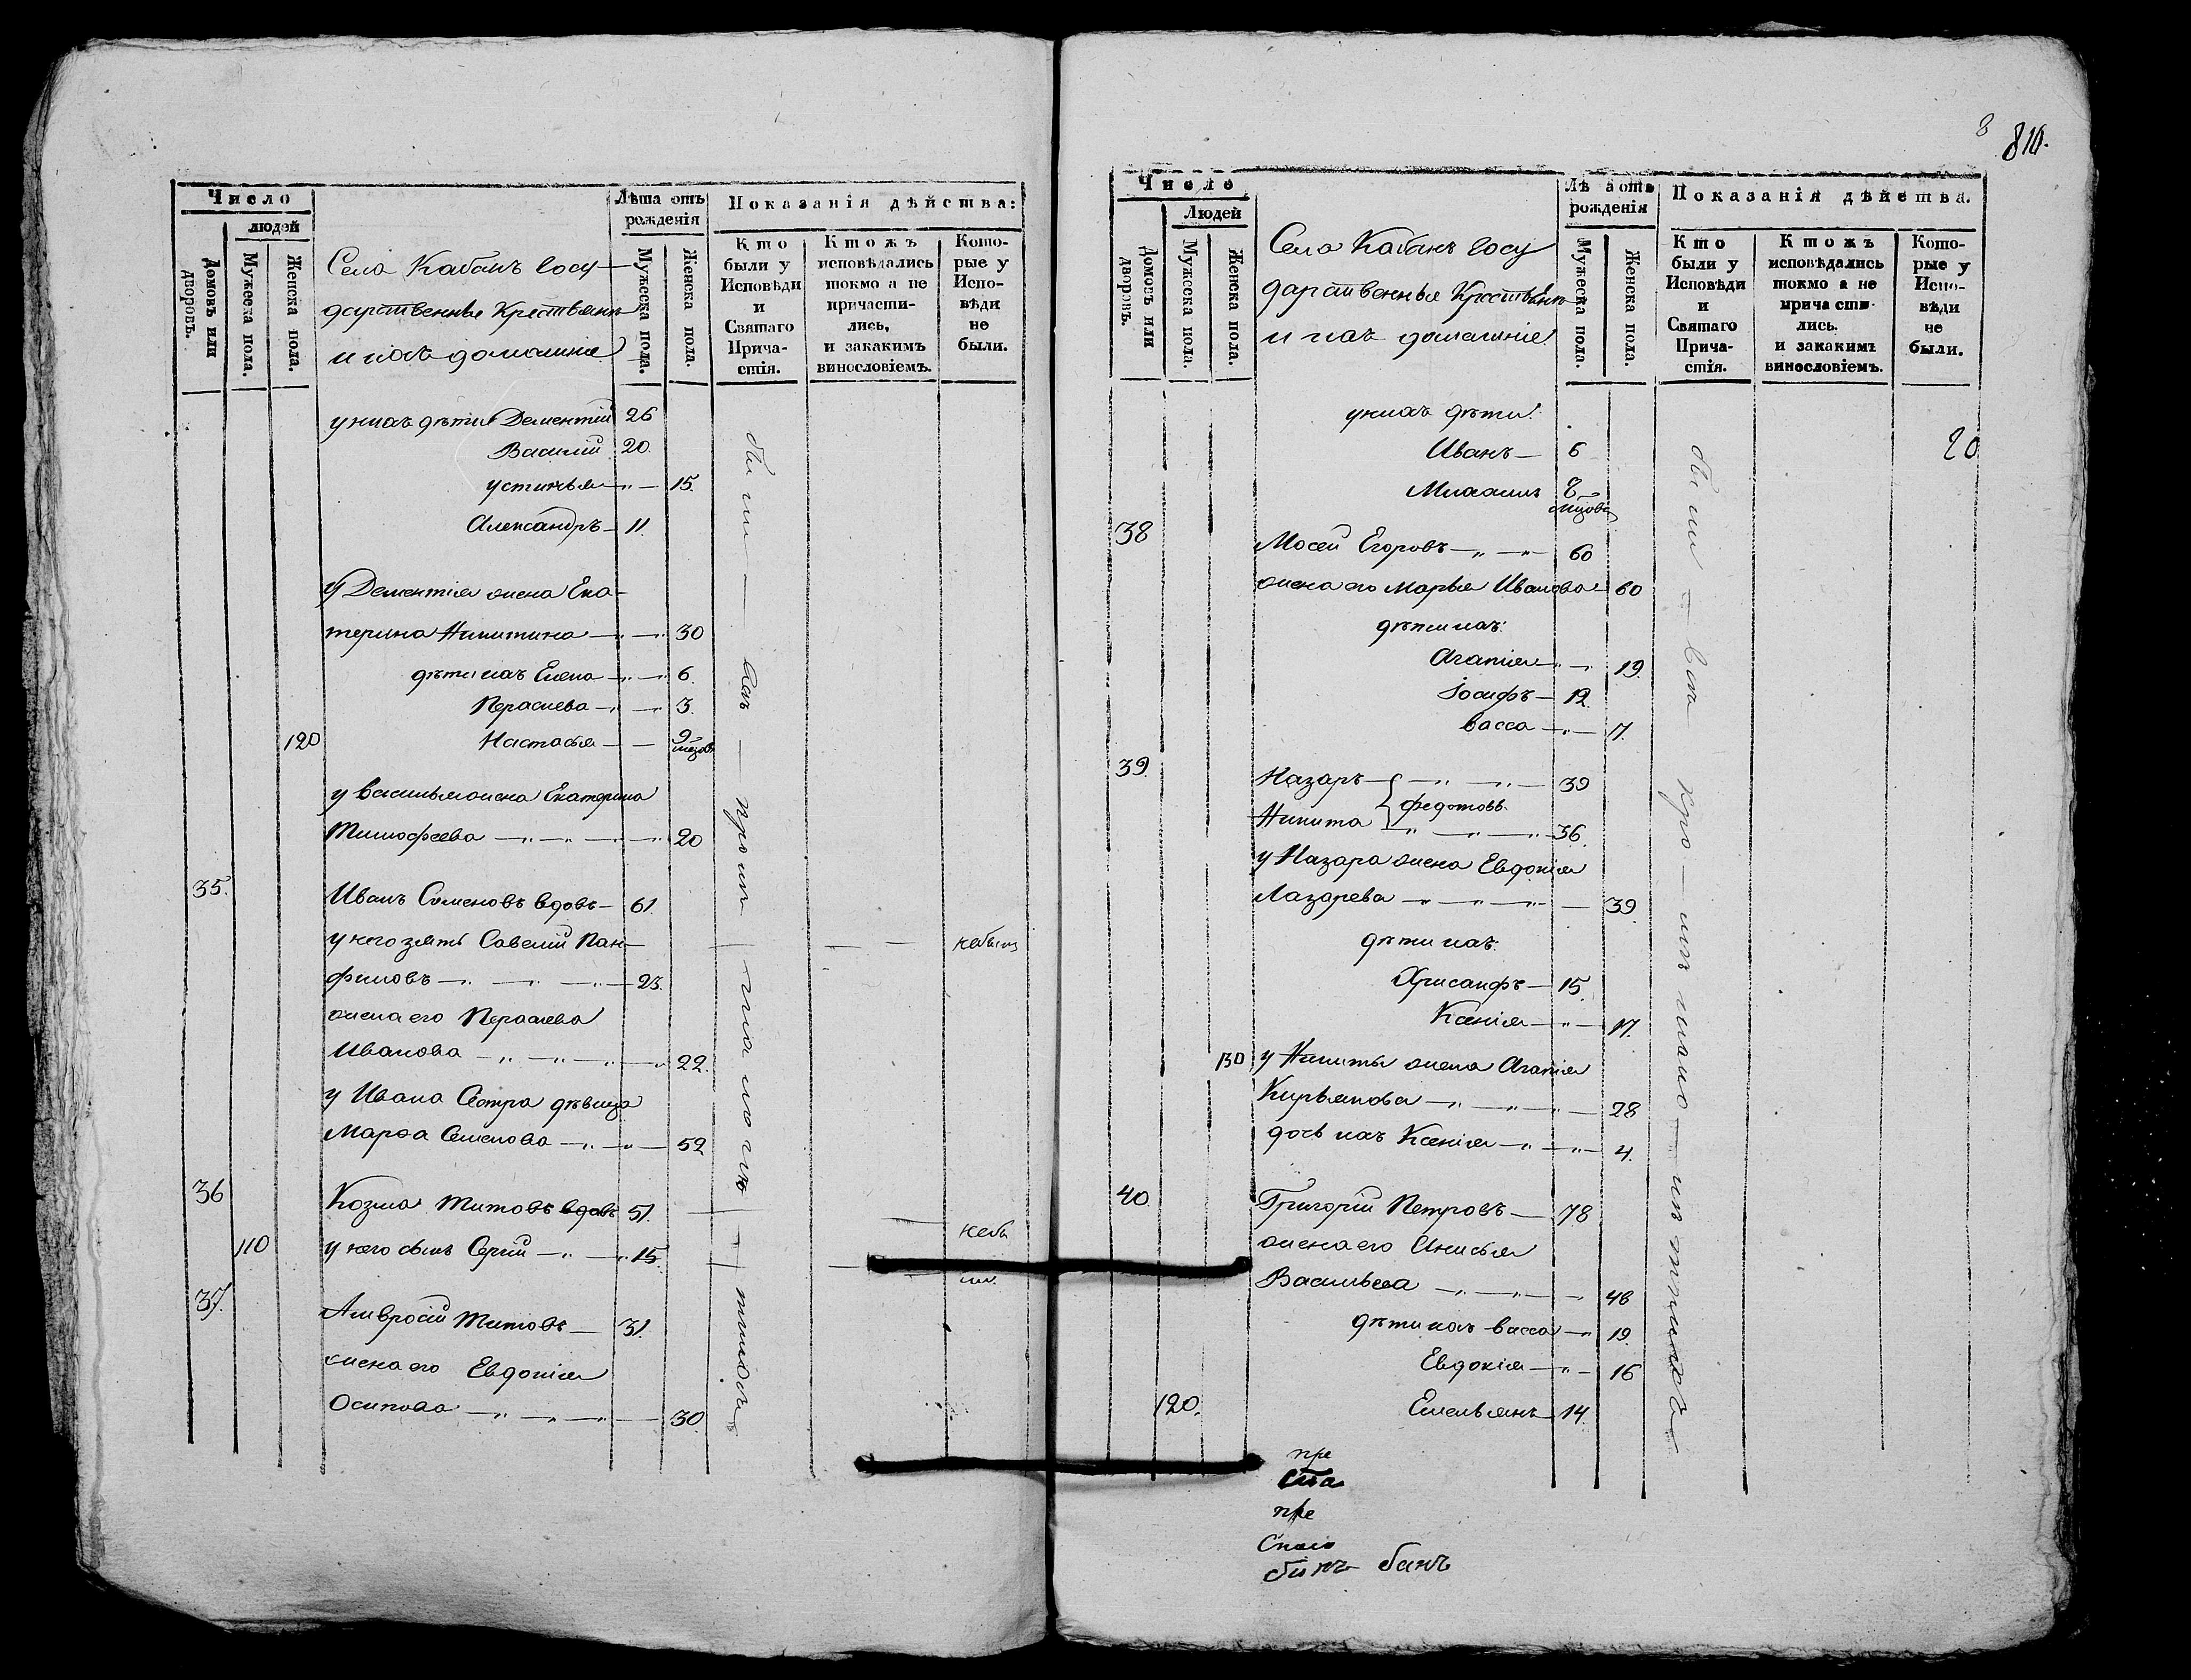 Число
людей
Домовъ или дворовъ.
Мужеска пола.
Женска пола.
Села Кабанъ Госу-
дарственные Крестьяне
и ихъ домашніе
Лѣта отъ рожденія
Мужеска пола.
Женска пола.
Показанія дѣйства:
Кто были у Исповѣди и Святаго Прича-стія.
Ктожъ исповѣдались токмо а не причасти-лись, и закакимъ винословіемъ.
Кото-рые у Испо-вѣди не были.
у нихъ дѣти Дементій 26
Василій 20.
Устинья 15.
Александръ 11.
У Дементія жена Ека-
терина Никитина 30
дѣти ихъ Елена 6.
Параскева 3.
120 Настасья 9
у Василья жена Екатерина
Тимофеева 20
35. Иванъ Семеновъ вдовъ 61.
у него зять Савелій Пан-
филовъ 23. небыли
жена его Параскева
Иванова 22.
у Ивана Сестра дѣвица
Марѳа Семенова 52
36 Козма Титовъ вдовъ 51.
110 у него сынъ Сергій 15. небы
ли.
37. Амвросій Титовъ 31.
жена его Евдокія
Осипова 30.
8
810.
Число
Людей
Домовъ или дворовъ.
Мужеска пола.
Женска пола.
Села Кабанъ Госу
дарственные Крестьяне
и ихъ домашніе.
Лѣта отъ рожденія
Мужеска пола.
Женска пола.
Показанія дѣйства.
Кто были у Исповѣди и Святаго Прича-стія.
Ктожъ исповѣдались токмо а не прича сти-лись. и закакимъ винословіемъ.
Кото-рые у Испо-вѣди не были.
у нихъ дѣти.
20
Иванъ 6
Михаилъ
38 Мосей Егоровъ 60
жена его Марья Иванова 60
дѣти ихъ:
Агапія 19.
Іосифъ 12.
Васса 7.
39. Назаръ 39
Федотовы.
Никита 36.
у Назара жена Евдокія
Лазарева 39.
дѣти ихъ:
Хрисанфъ 15.
Ксенія 17.
130 у Никиты жена Агапія
Кирьянова 28
дочь ихъ Ксенія 4.
40. Григорій Петровъ 78
жена его Анисья
Васильева 48
дѣти ихъ Васса 19.
Евдокія 16
120. Емельянъ 14.
пре
пре
бинъ банъ